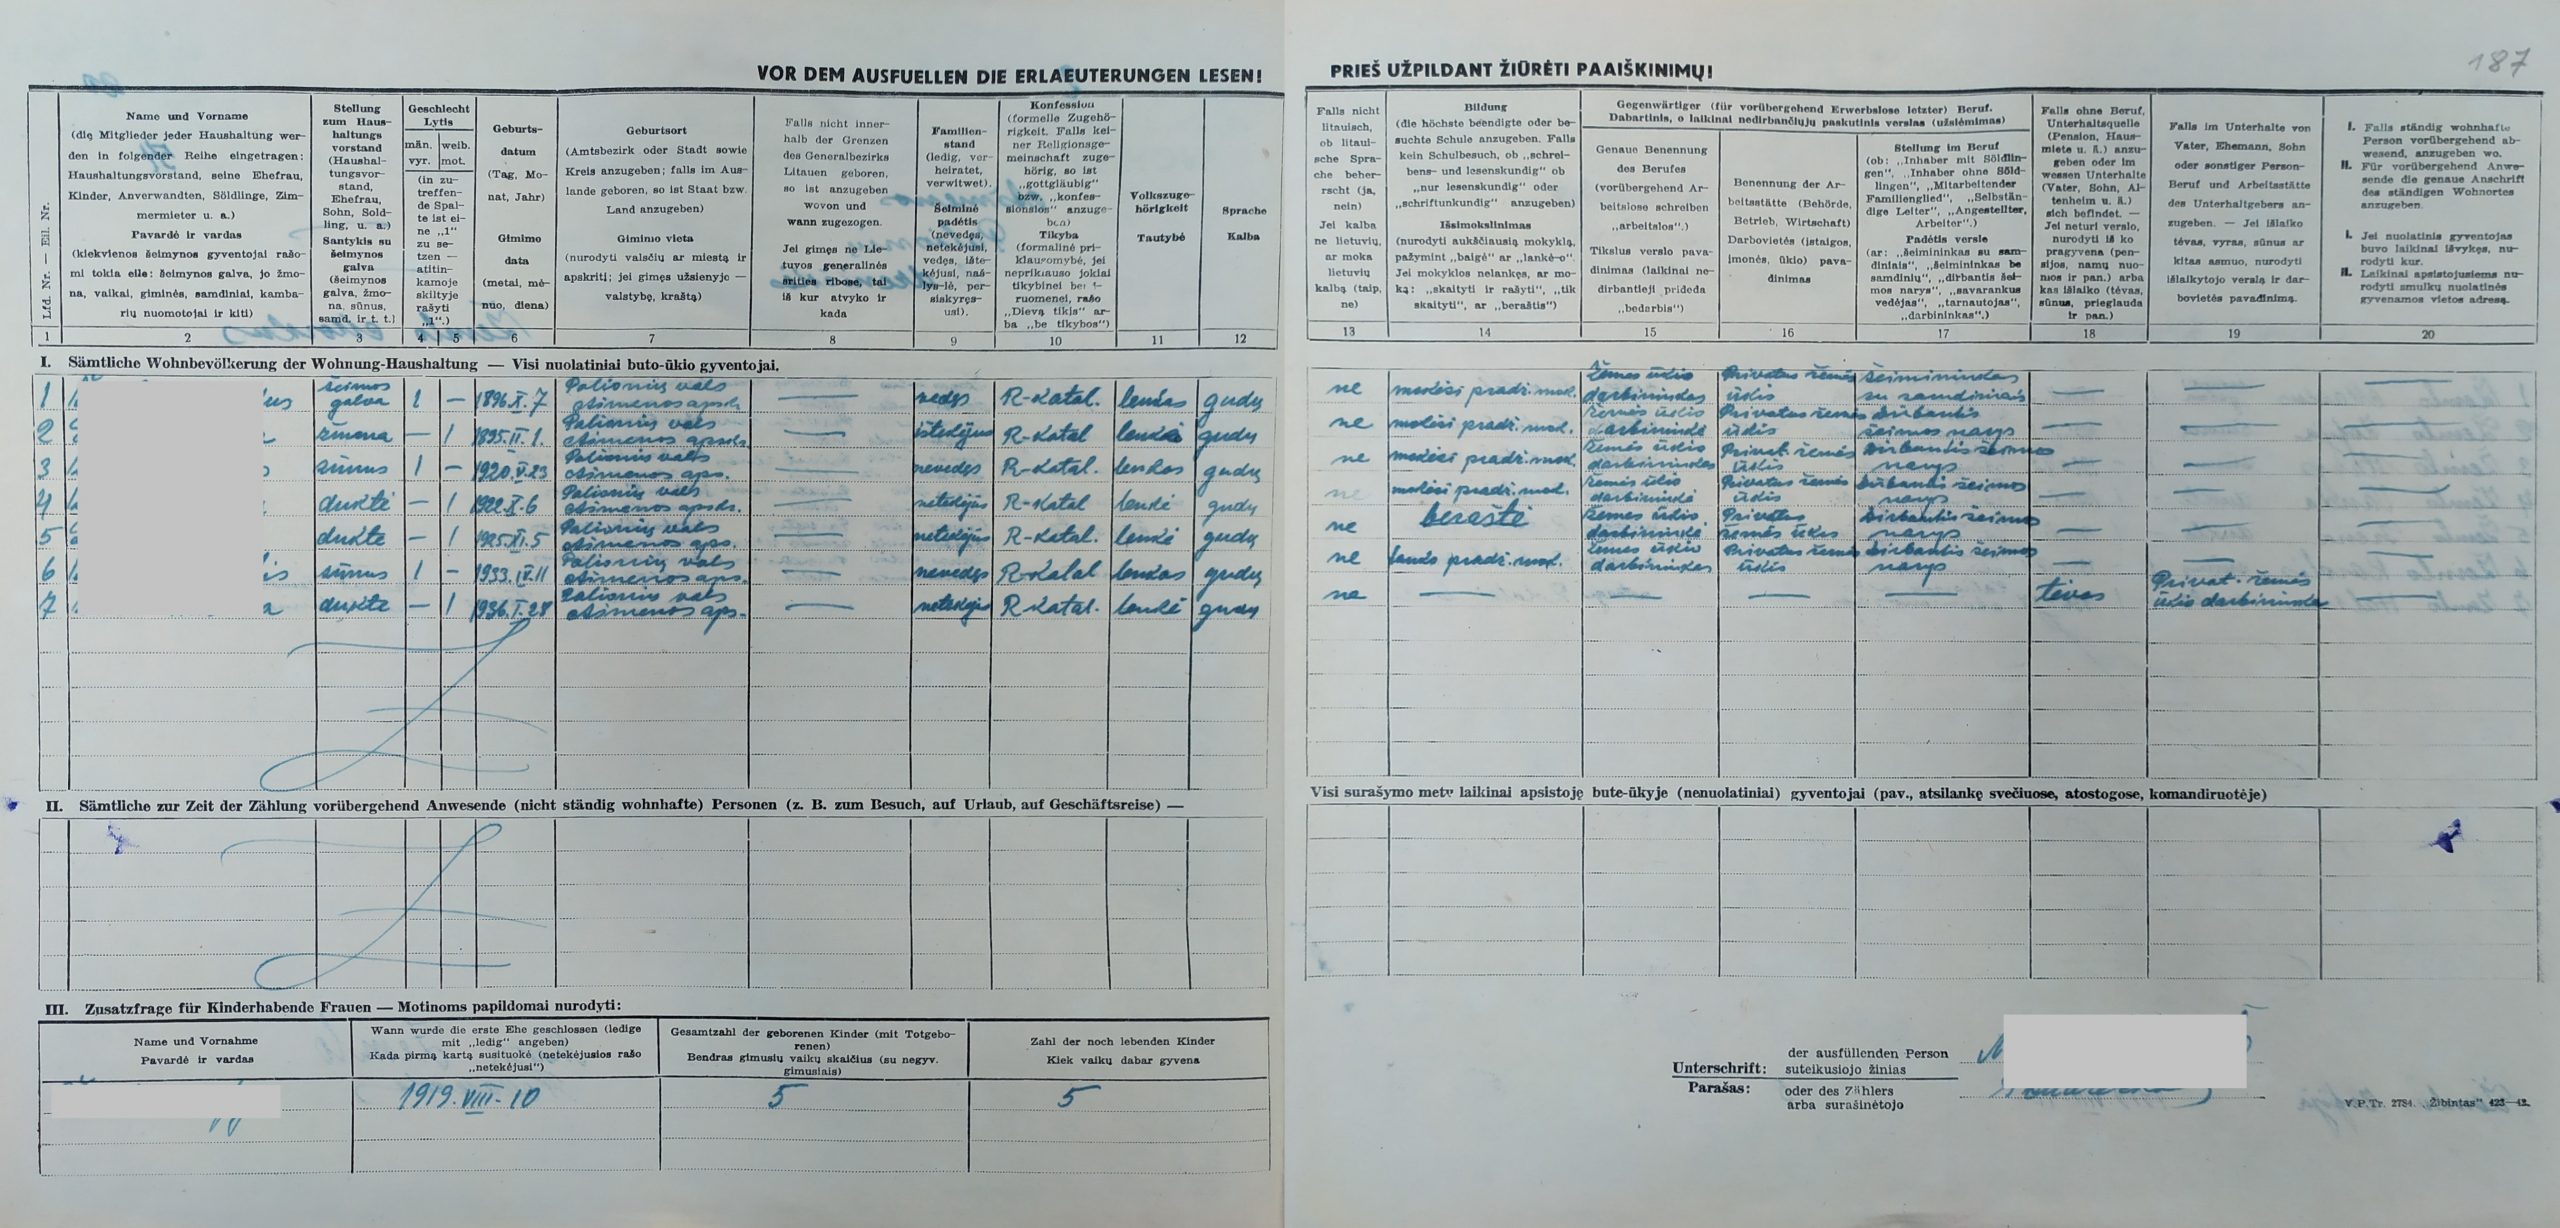 187
VOR DEM AUSFUELLEN DIE ERLAEUTERUNGEN LESEN!
PRIEŠ UŽPILDANT ŽIŪRĖTI PAAIŠKINIMŲ!
Lfd. Nr. — Eil. Nr.
1
Name und Vorname
(die Mitglieder jeder Haushaltung wer-
den in folgender Reihe eingetragen:
Haushaltungsvorstand, seine Ehefrau,
Kinder, Anverwandten, Söldlinge, Zim-
mermieter u. a.)
Pavardė ir vardas
(kiekvienos šeimynos gyventojai rašo-
mi tokia eile: šeimynos galva, jo žmo-
na, vaikai, giminės, samdiniai, kamba-
rių nuomotojai ir kiti)
2
Stellung
zum Haus-
haltungs
vorstand
(Haushal-
tungsvor-
stand,
Ehefrau,
Sohn, Sold-
ling, u. a.)
Santykis su
šeimynos
galva
(šeimynos
galva, žmo-
na, sūnus,
samd. ir t. t.)
3
Geschlecht
Lytis
män.
vyr.
weib.
mot.
(in zu-
treffen-
de Spal-
te ist ei-
ne „1"
zu se-
tzen —
atitin-
kamoje
skiltyje
rašyti
„1".)
4
5
Geburts-
datum
(Tag, Mo-
nat, Jahr)
Gimimo
data
(metai, mė-
nuo, diena)
6
Geburtsort
(Amtsbezirk oder Stadt sowie
Kreis anzugeben; falls im Aus-
lande geboren, so ist Staat bzw.
Land anzugeben)
Gimimo vieta
(nurodyti valsčių ar miestą ir
apskritį; jei gimęs užsienyje —
valstybę, kraštą)
7
Falls nicht inner-
halb der Grenzen
des Generalbezirks
Litauen geboren,
so ist anzugeben
wovon und
wann zugezogen.
Jei gimęs ne Lie-
tuvos generalinės
srities ribose, tai
iš kur atvyko ir
kada
8
Familien-
stand
(ledig, ver-
heiratet,
verwitwet).
Šeiminė
padėtis
(nevedęs,
netekėjusi,
vedęs, ište-
kėjusi, naš-
lys-lė, per-
siskyręs-
usi).
9
Konfession
(formelle Zugehö-
rigkeit. Falls kei-
ner Religionsge-
meinschaft zuge-
hörig, so ist
„gottgläubig"
bzw. „konfes-
sionslos" anzuge-
ben)
Tikyba
(formalinė pri-
klausomybė, jei
nepriklauso jokiai
tikybinei ben-
ruomenei, rašo
„Dievą tikįs" ar-
ba „be tikybos")
10
Volkszuge-
hörigkeit
Tautybė
11
Sprache
Kalba
12
Falls nicht
litauisch,
ob litaui-
sche Spra-
che beher-
rscht (ja,
nein)
Jei kalba
ne lietuvių,
ar moka
lietuvių
kalbą (taip,
ne)
13
Bildung
(die höchste beendigte oder be-
suchte Schule anzugeben. Falls
kein Schulbesuch, ob „schrei-
bens- und lesenskundig" ob
„nur lesenskundig" oder
„schriftunkundig" anzugeben)
Išsimokslinimas
(nurodyti aukščiausią mokyklą,
pažymint „baigė" ar „lankė-o".
Jei mokyklos nelankęs, ar mo-
ka: „skaityti ir rašyti", „tik
skaityti", ar „beraštis")
14
Gegenwärtiger (für vorübergehend Erwerbslose letzter) Beruf.
Dabartinis, o laikinai nedirbančiųjų paskutinis verslas (užsiėmimas)
Genaue Benennung
des Berufes
(vorübergehend Ar-
beitslose schreiben
„arbeitslos".)
Tikslus verslo pava-
dinimas (laikinai ne-
dirbantieji prideda
„bedarbis")
15
Benennung der Ar-
beitsstätte (Behörde,
Betrieb, Wirtschaft)
Darbovietės (įstaigos,
įmonės, ūkio) pava-
dinimas
16
Stellung im Beruf
(ob: „Inhaber mit Söldlin-
gen", „Inhaber ohne Söld-
lingen", „Mitarbeitender
Familienglied", „Selbstän-
dige Leiter", „Angestellter,
Arbeiter".)
Padėtis versle
(ar: „šeimininkas su sam-
diniais", „šeimininkas be
samdinių", „dirbantis šei-
mos narys", „savarankus
vedėjas", „tarnautojas",
„darbininkas".)
17
Falls ohne Beruf,
Unterhaltsquelle
(Pension, Haus-
miete u. ä.) anzu-
geben oder im
wessen Unterhalte
(Vater, Sohn, Al-
tenheim u. ä.)
sich befindet. —
Jei neturi verslo,
nurodyti iš ko
pragyvena (pen-
sijos, namų nuo-
mos ir pan.) arba
kas išlaiko (tėvas,
sūnus, prieglauda
ir pan.)
18
Falls im Unterhalte von
Vater, Ehemann, Sohn
oder sonstiger Person-
Beruf und Arbeitsstätte
des Unterhaltgebers an-
zugeben. — Jei išlaiko
tėvas, vyras, sūnus ar
kitas asmuo, nurodyti
išlaikytojo verslą ir dar-
bovietės pavadinimą.
19
I. Falls ständig wohnhafte
Person vorübergehend ab-
wesend, anzugeben wo.
II. Für vorübergehend Anwe-
sende die genaue Anschrift
des ständigen Wohnortes
anzugeben.
I. Jei nuolatinis gyventojas
buvo laikinai išvykęs, nu-
rodyti kur.
II. Laikinai apsistojusiems nu-
rodyti smulkų nuolatinės
gyvenamos vietos adresą.
20
I. Sämtliche Wohnbevölkerung der Wohnung-Haushaltung — Visi nuolatiniai buto-ūkio gyventojai.
1 šeimos galva 1 — 1896.X.7 Palionių vals Ašmenos apsk. — vedęs R-Katal. lenkas gudų ne mokėsi pradž. mok. žemės ūkio darbininkas Privatus žemės ūkis šeimininkas su samdiniais — — —
2 žmona — 1 1895.II.1. Palionių vals Ašmenos apsk. — ištekėjus R-Katal lenkė gudų ne mokėsi pradž. mok. žemės ūkio darbininkė Privatus žemės ūkis dirbantis šeimos narys — — —
3 sūnus 1 — 1920.V.23 Palionių vals Ašmenos aps. — nevedęs R-Katal. lenkas gudų ne mokėsi pradž. mok. žemės ūkio darbininkas Privat. žemės ūkis dirbantis šeimos narys — — —
4 duktė — 1 1922.X.6 Palionių vals Ašmenos apsk. — netekėjus R-Katal lenkė gudų ne mokėsi pradž. mok. žemės ūkio darbininkė Privatus žemės ūkis dirbantis šeimos narys — — —
5 duktė — 1 1925.XI.5 Palionių vals Ašmenos aps. — netekėjus R-Katal. lenkė gudų ne beraštė žemės ūkio darbininkė Privatus žemės ūkis dirbantis šeimos narys — — —
6 sūnus 1 — 1933.IV.11 Palionių vals Ašmenos aps. — nevedęs R-Katal lenkas gudų ne lanko pradž. mok. žemės ūkio darbininkas Privatus žemės ūkis dirbantis šeimos narys — — —
7 duktė — 1 1936.I.28 Palionių vals Ašmenos aps. — netekėjus R-Katal. lenkė gudų ne — — — — tėvas Privat. žemės ūkio darbininkas —
II. Sämtliche zur Zeit der Zählung vorübergehend Anwesende (nicht ständig wohnhafte) Personen (z. B. zum Besuch, auf Urlaub, auf Geschäftsreise) —
Visi surašymo metu laikinai apsistoję bute-ūkyje (nenuolatiniai) gyventojai (pav., atsilankę svečiuose, atostogose, komandiruotėje)
III. Zusatzfrage für Kinderhabende Frauen — Motinoms papildomai nurodyti:
Name und Vornahme
Pavardė ir vardas
Wann wurde die erste Ehe geschlossen (ledige
mit „ledig" angeben)
Kada pirmą kartą susituokė (netekėjusios rašo
„netekėjusi")
Gesamtzahl der geborenen Kinder (mit Totgebo-
renen)
Bendras gimusių vaikų skaičius (su negyv.
gimusiais)
Zahl der noch lebenden Kinder
Kiek vaikų dabar gyvena
1919.VIII-10 5 5
Unterschrift:
Parašas:
der ausfüllenden Person
suteikusiojo žinias
oder des Zählers
arba surašinėtojo
V.P.Tr. 2784. „Žibintas" 423—42.